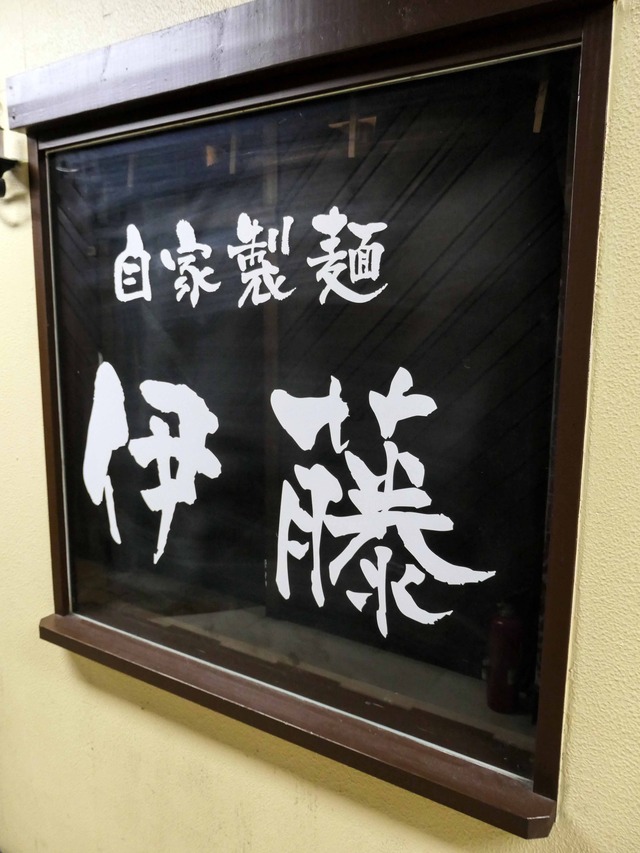 自家製麺
伊藤